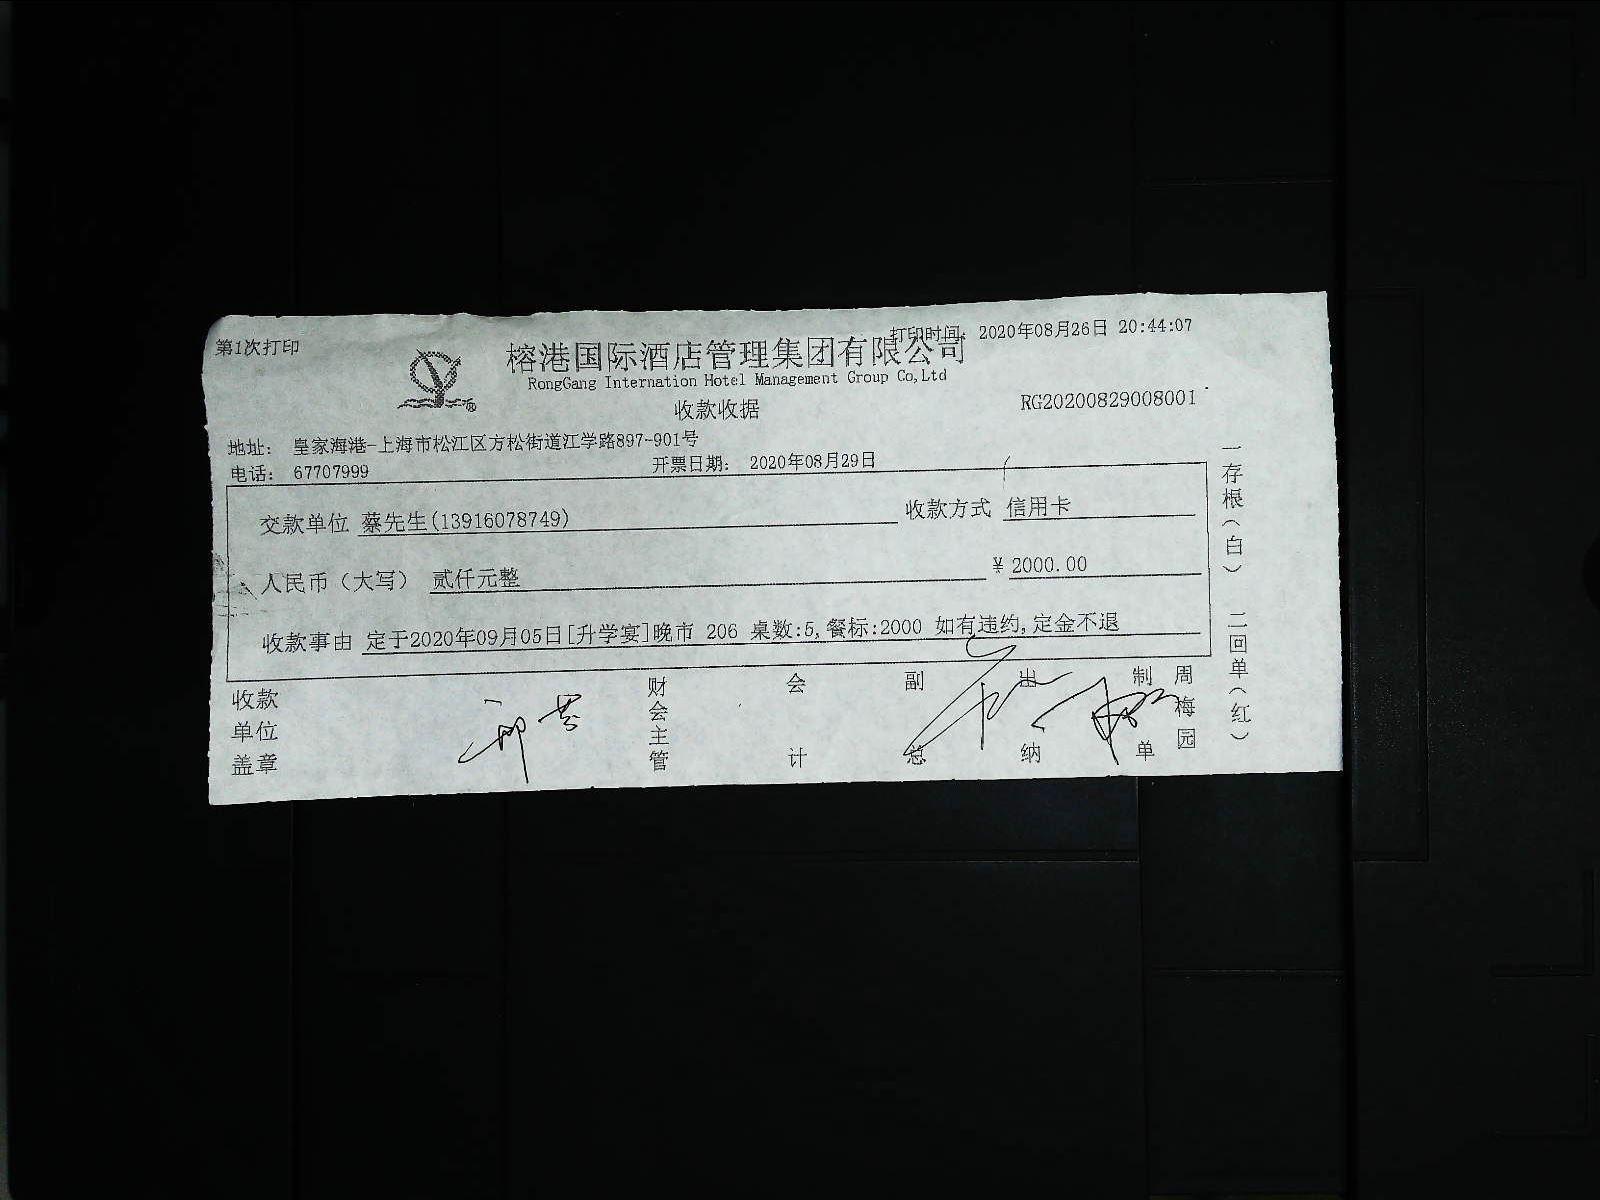 第1次打印
打印时间: 2020年08月26日 20:44:07
榕港国际酒店管理集团有限公司
RongGang Internation Hotel Management Group Co,Ltd
收款收据
RG20200829008001
地址: 皇家海港-上海市松江区方松街道江学路897-901号
电话: 67707999 开票日期: 2020年08月29日
交款单位 蔡先生(13916078749) 收款方式 信用卡
人民币（大写） 贰仟元整 ¥ 2000.00
收款事由 定于2020年09月05日[升学宴]晚市 206 桌数:5,餐标:2000 如有违约,定金不退
收款单位盖章 财会主管 会计 副总 出纳 制单 周梅园
一存根(白) 二回单(红)